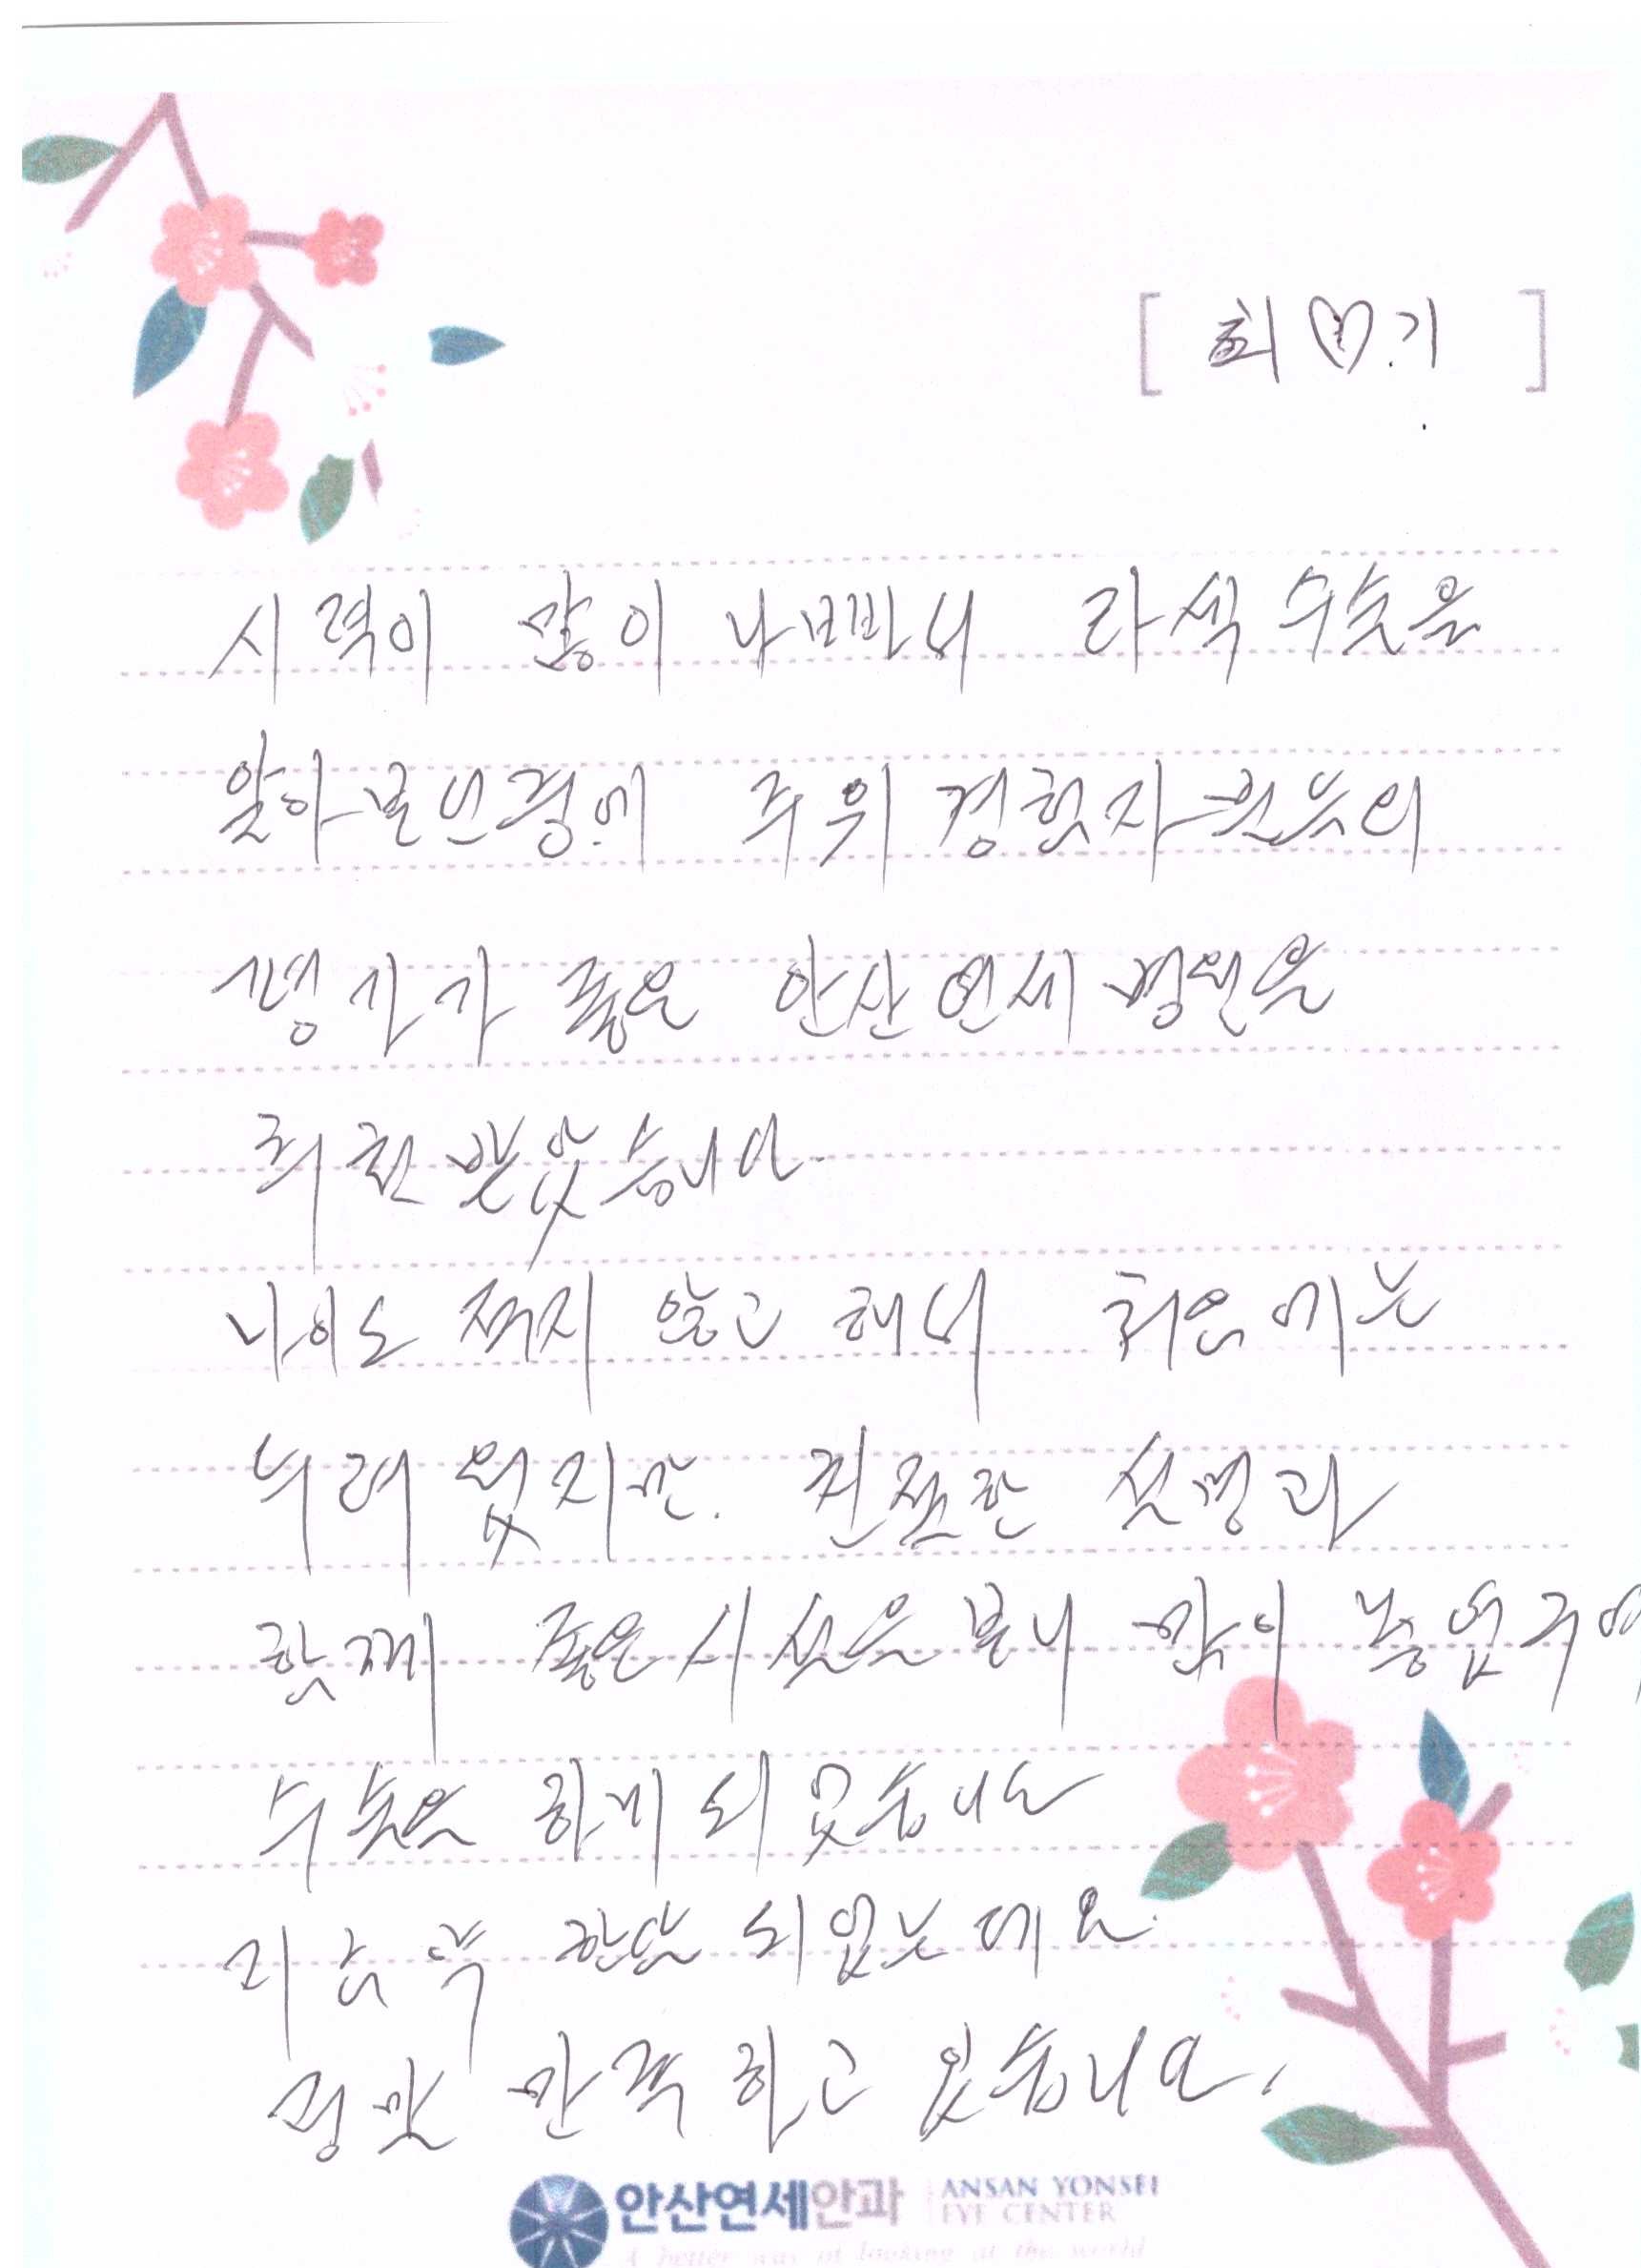 [ 최♡기 ]
시력이 많이 나빠서 라섹 수술을
알아보던중에 주위 경험자분들의
평가가 좋은 안산연세병원을
추천 받았습니다.
나이도 적지 않고 해서 처음에는
두려웠지만. 친절한 설명과
함께 좋은 시설을 보니 맘이 놓였구여
수술을 하게 되었습니다
지금 약 한달 되었는데요.
정말 만족하고 있습니다.
안산연세안과 ANSAN YONSEI
EYE CENTER
A better way of looking at the world